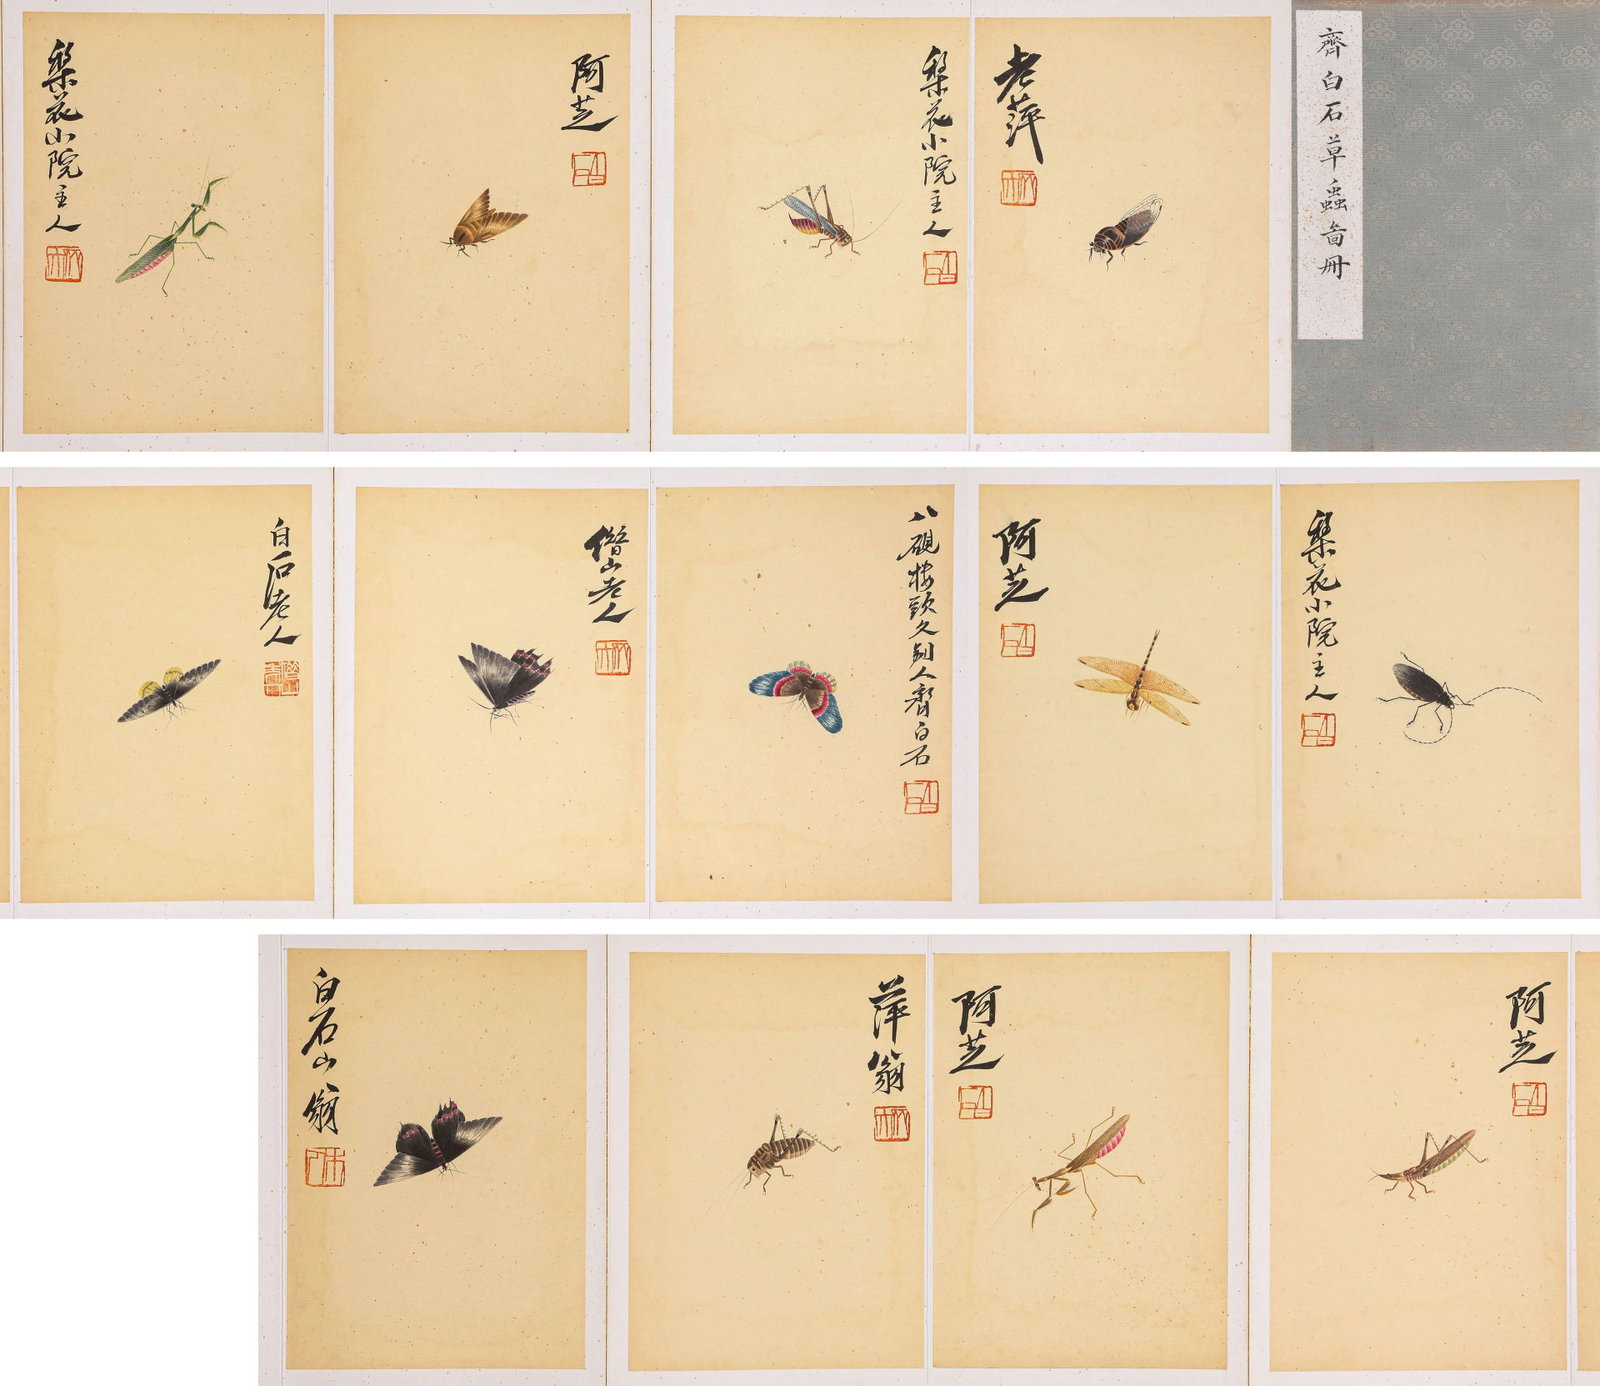 齊白石草蟲畣冊
老萍
棃花小院主人
阿芝
棃花小院主人
棃花小院主人
阿芝
八硯樓頭久別人齊白石
僭山老人
白石老人
阿芝
阿芝
萍翁
白石山翁